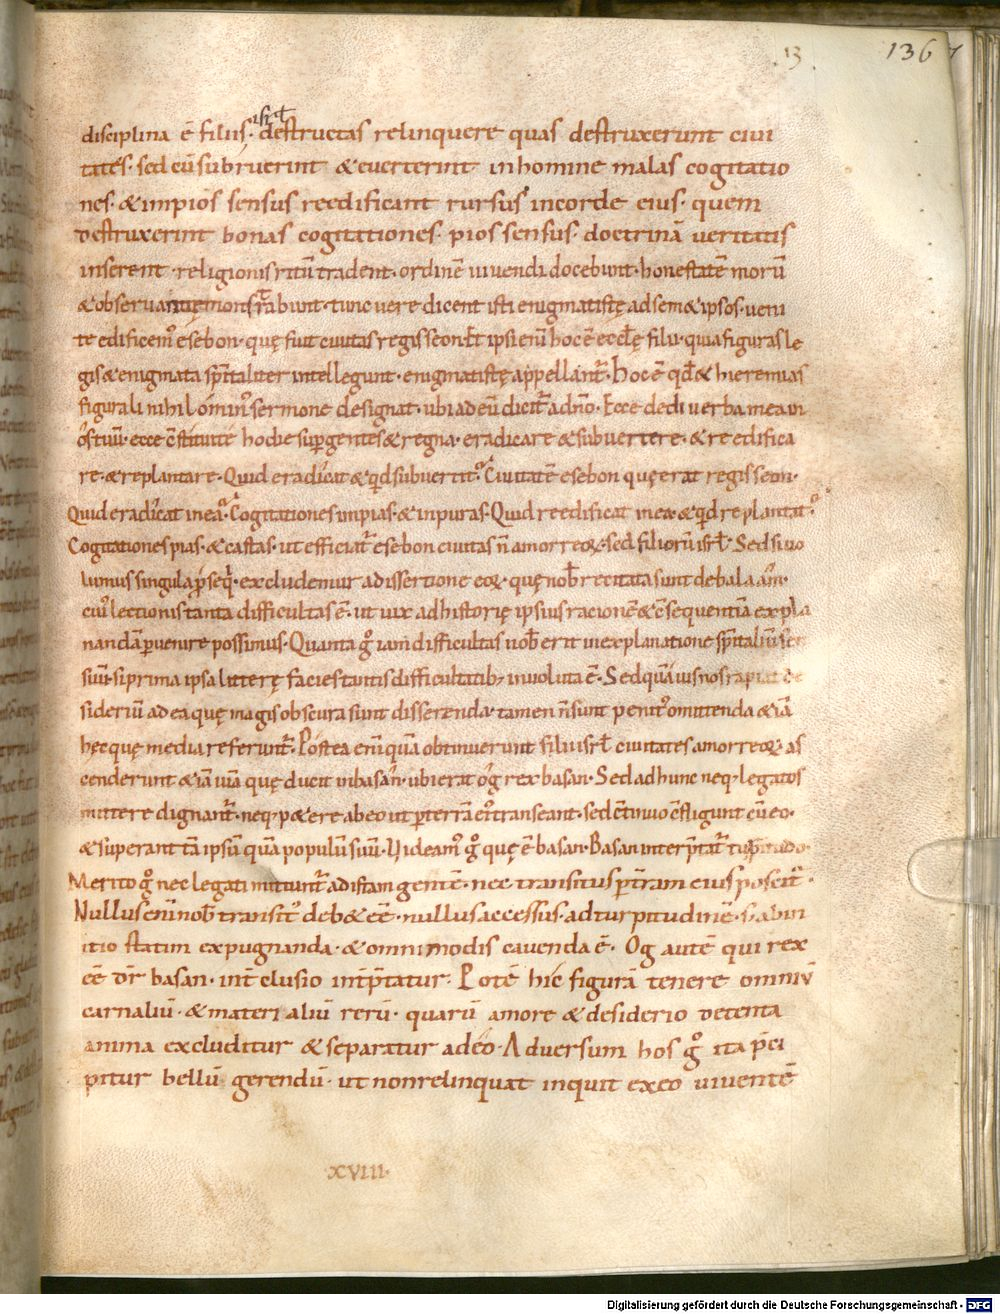 13
136
isrł
disciplina ē filiis. destructas relinquere quas destruxerunt civi
tates. sed eū subruerint & euerterint in homine malas cogitatio
nes. & impios sensus reedificant rursus in corde eius. quem
destruxerint bonas cogitationes. pios sensus. doctrinā veritatis
inserent. religionis ritū tradent. ordinē vivendi docebunt. honestatē morū
& observantię monstrabunt. tunc vere dicent isti enigmatistę ad sem&ipsos. veni
te edificem' esebon. quę fuit civitas regis seon. Et ipsi enī hoc ē ecclę filii. quia figuras le
gis & enigmata spītaliter intellegunt. enigmatistę appellant̄. Hoc ē qđ & hieremias
figurali nihilomin' sermone designat. ubi ad eū dicit̄ a dn̄o. Ecce dedi verba mea in
os tuū. ecce c̄stitui te hodie sup gentes & regna. eradicare & subvertere. & reedifica
re. & replantare. Quid eradicat & qđ subvertit? Civitatē esebon quę erat regis seon.
Quid eradicat in ea? Cogitationes impias. & inpuras. Quid reedificat in ea & qđ replantat?
Cogitationes pias. & castas. ut efficiat̄ esebon civitas n̄ amorreoꝝ. sed filiorū isrł. Sed si vo
lumus singula p̄seq̄. excludemur a dissertione eoꝝ. quę nob̄ recitata sunt de balaam.
cui' lectionis tanta difficultas ē. ut vix ad historię ipsius racionē & c̄sequentiā expla
nandā pvenire possimus. Quanta g̊ iam difficultas nob̄ erit in explanatione spītaliū sen
suū. si prima ipsa litterę facies tantis difficultatibꝫ involuta ē. Sed quāvis nos rapiat de
sideriū ad ea quę magis obscura sunt disserenda. tamen n̄ sunt penit' omittenda & iā
hęc quę media referunt̄. Postea enī quā obtinuerunt filii isrł civitates amorreoꝝ as
cenderunt & iā viā quę ducit in basan. ubi erat og rex basan. Sed ad hunc neqꝫ legatos
mittere dignant̄. neqꝫ p&ere ab eo ut p terrā ei' transeant. sed c̄tinuo c̄fligunt cū eo.
& superant tā ipsū quā populū suū. Videam' g̊ quę ē basan. Basan interp̄tat̄ turpitudo.
Merito g̊ nec legati mittunt̄ ad istam gentē. nec transitus p t̄ram eius poscit̄.
Nullus enī nob̄ transit' deb& eē. nullus accessus. ad turpitudinē. s; ab in
itio statim expugnanda. & omnimodis cavenda ē. Og autē qui rex
eē dr̄ basan. int̄clusio int̄p̄tatur. Potē hic figurā tenere omniū
carnaliū. & materialiū rerū. quarū amore & desiderio detenta
anima excluditur & separatur a deo. Adversum hos g̊ ita p̄ci
pitur bellū gerendū. ut non relinquat inquit ex eo viventē
.xviii.
Digitalisierung gefördert durch die Deutsche Forschungsgemeinschaft - DFG